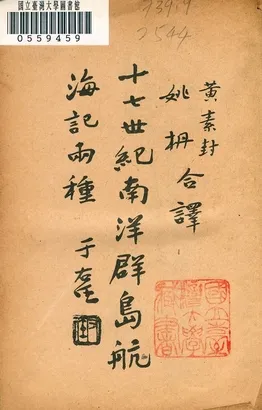 國立臺灣大學圖書館
0559459
黃素封
姚枬合譯
十七世紀南洋群島航
海記兩種
于右任
國立臺
灣大學
藏書